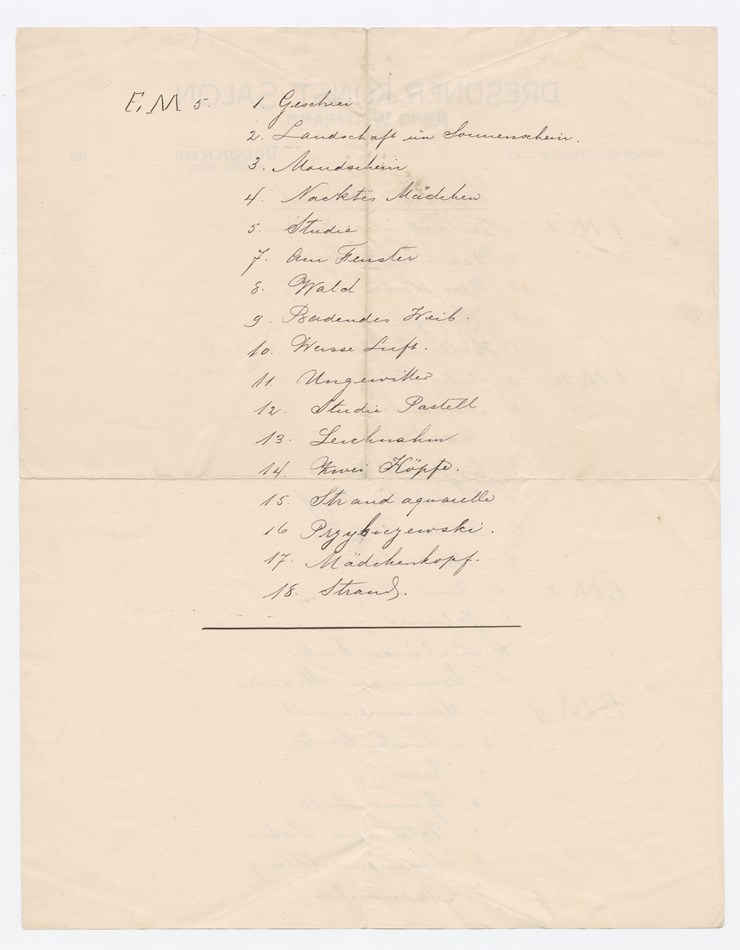 E. M 5 1. Geschrei.
2. Landschaft im Sonnenschein.
3. Mondschein
4. Nacktes Mädchen
5. Studie
7. Am Fenster
8. Wald
9. Badendes Weib.
10. Weisse Luft.
11. Ungewitter
12. Studie Pastell
13.
14. Zwei Köpfe.
15. Strand aquarelle
16 Przybiczewski.
17. Mädchenkopf.
18. Strand.